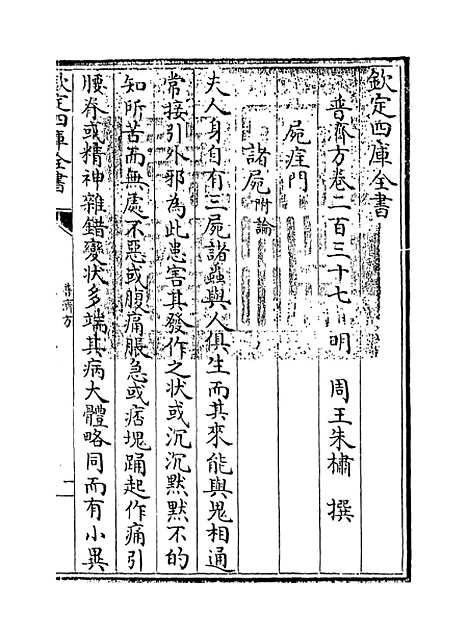 欽定四庫全書
普濟方卷二百三十七 明 周王朱橚 撰
屍疰門
諸屍附論
夫人身自有三屍諸蟲與人俱生而其來能與鬼相通
常接引外邪為此患害其發作之状或沉沉默默不的
知所苦而無處不惡或腹痛脹急或痞塊踊起作痛引
腰脊或精神雜錯變状多端其病大體略同而有小異
欽定四庫全書
普濟方
一